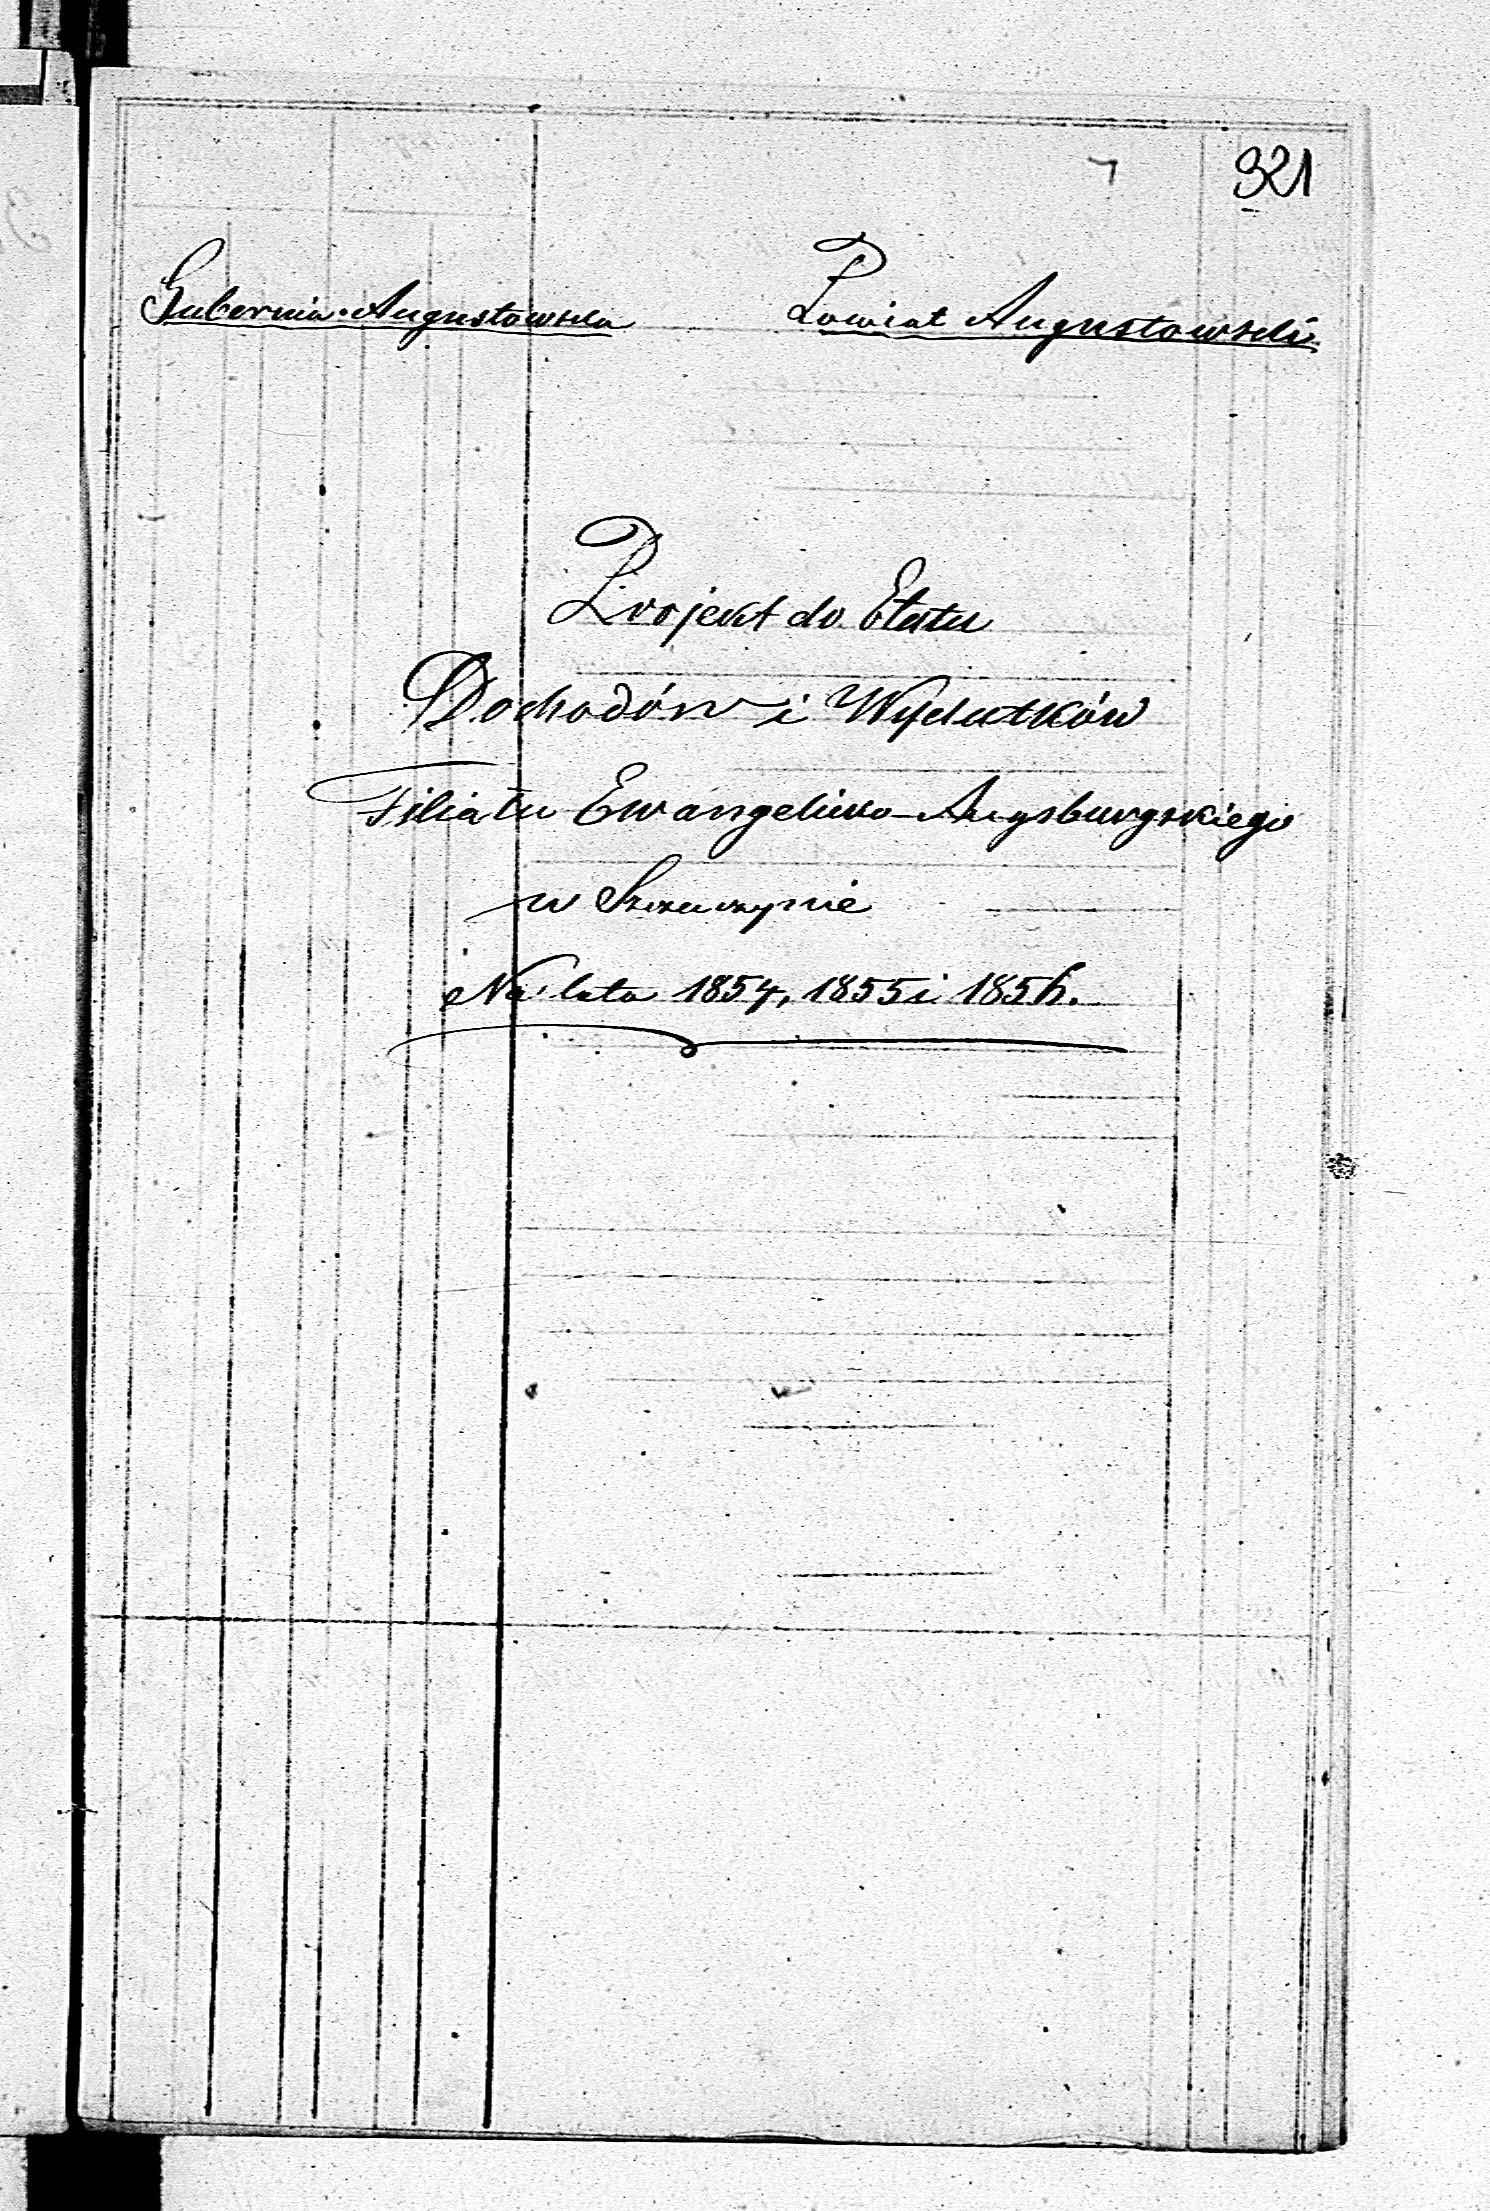 321
Gubernia Augustowska Powiat Augustowski
Projekt do Etatu
Dochodów i Wydatków
Filiału Ewangelicko-Augsburgskiego
w Szczuczynie
Na lata 1854, 1855 i 1856.